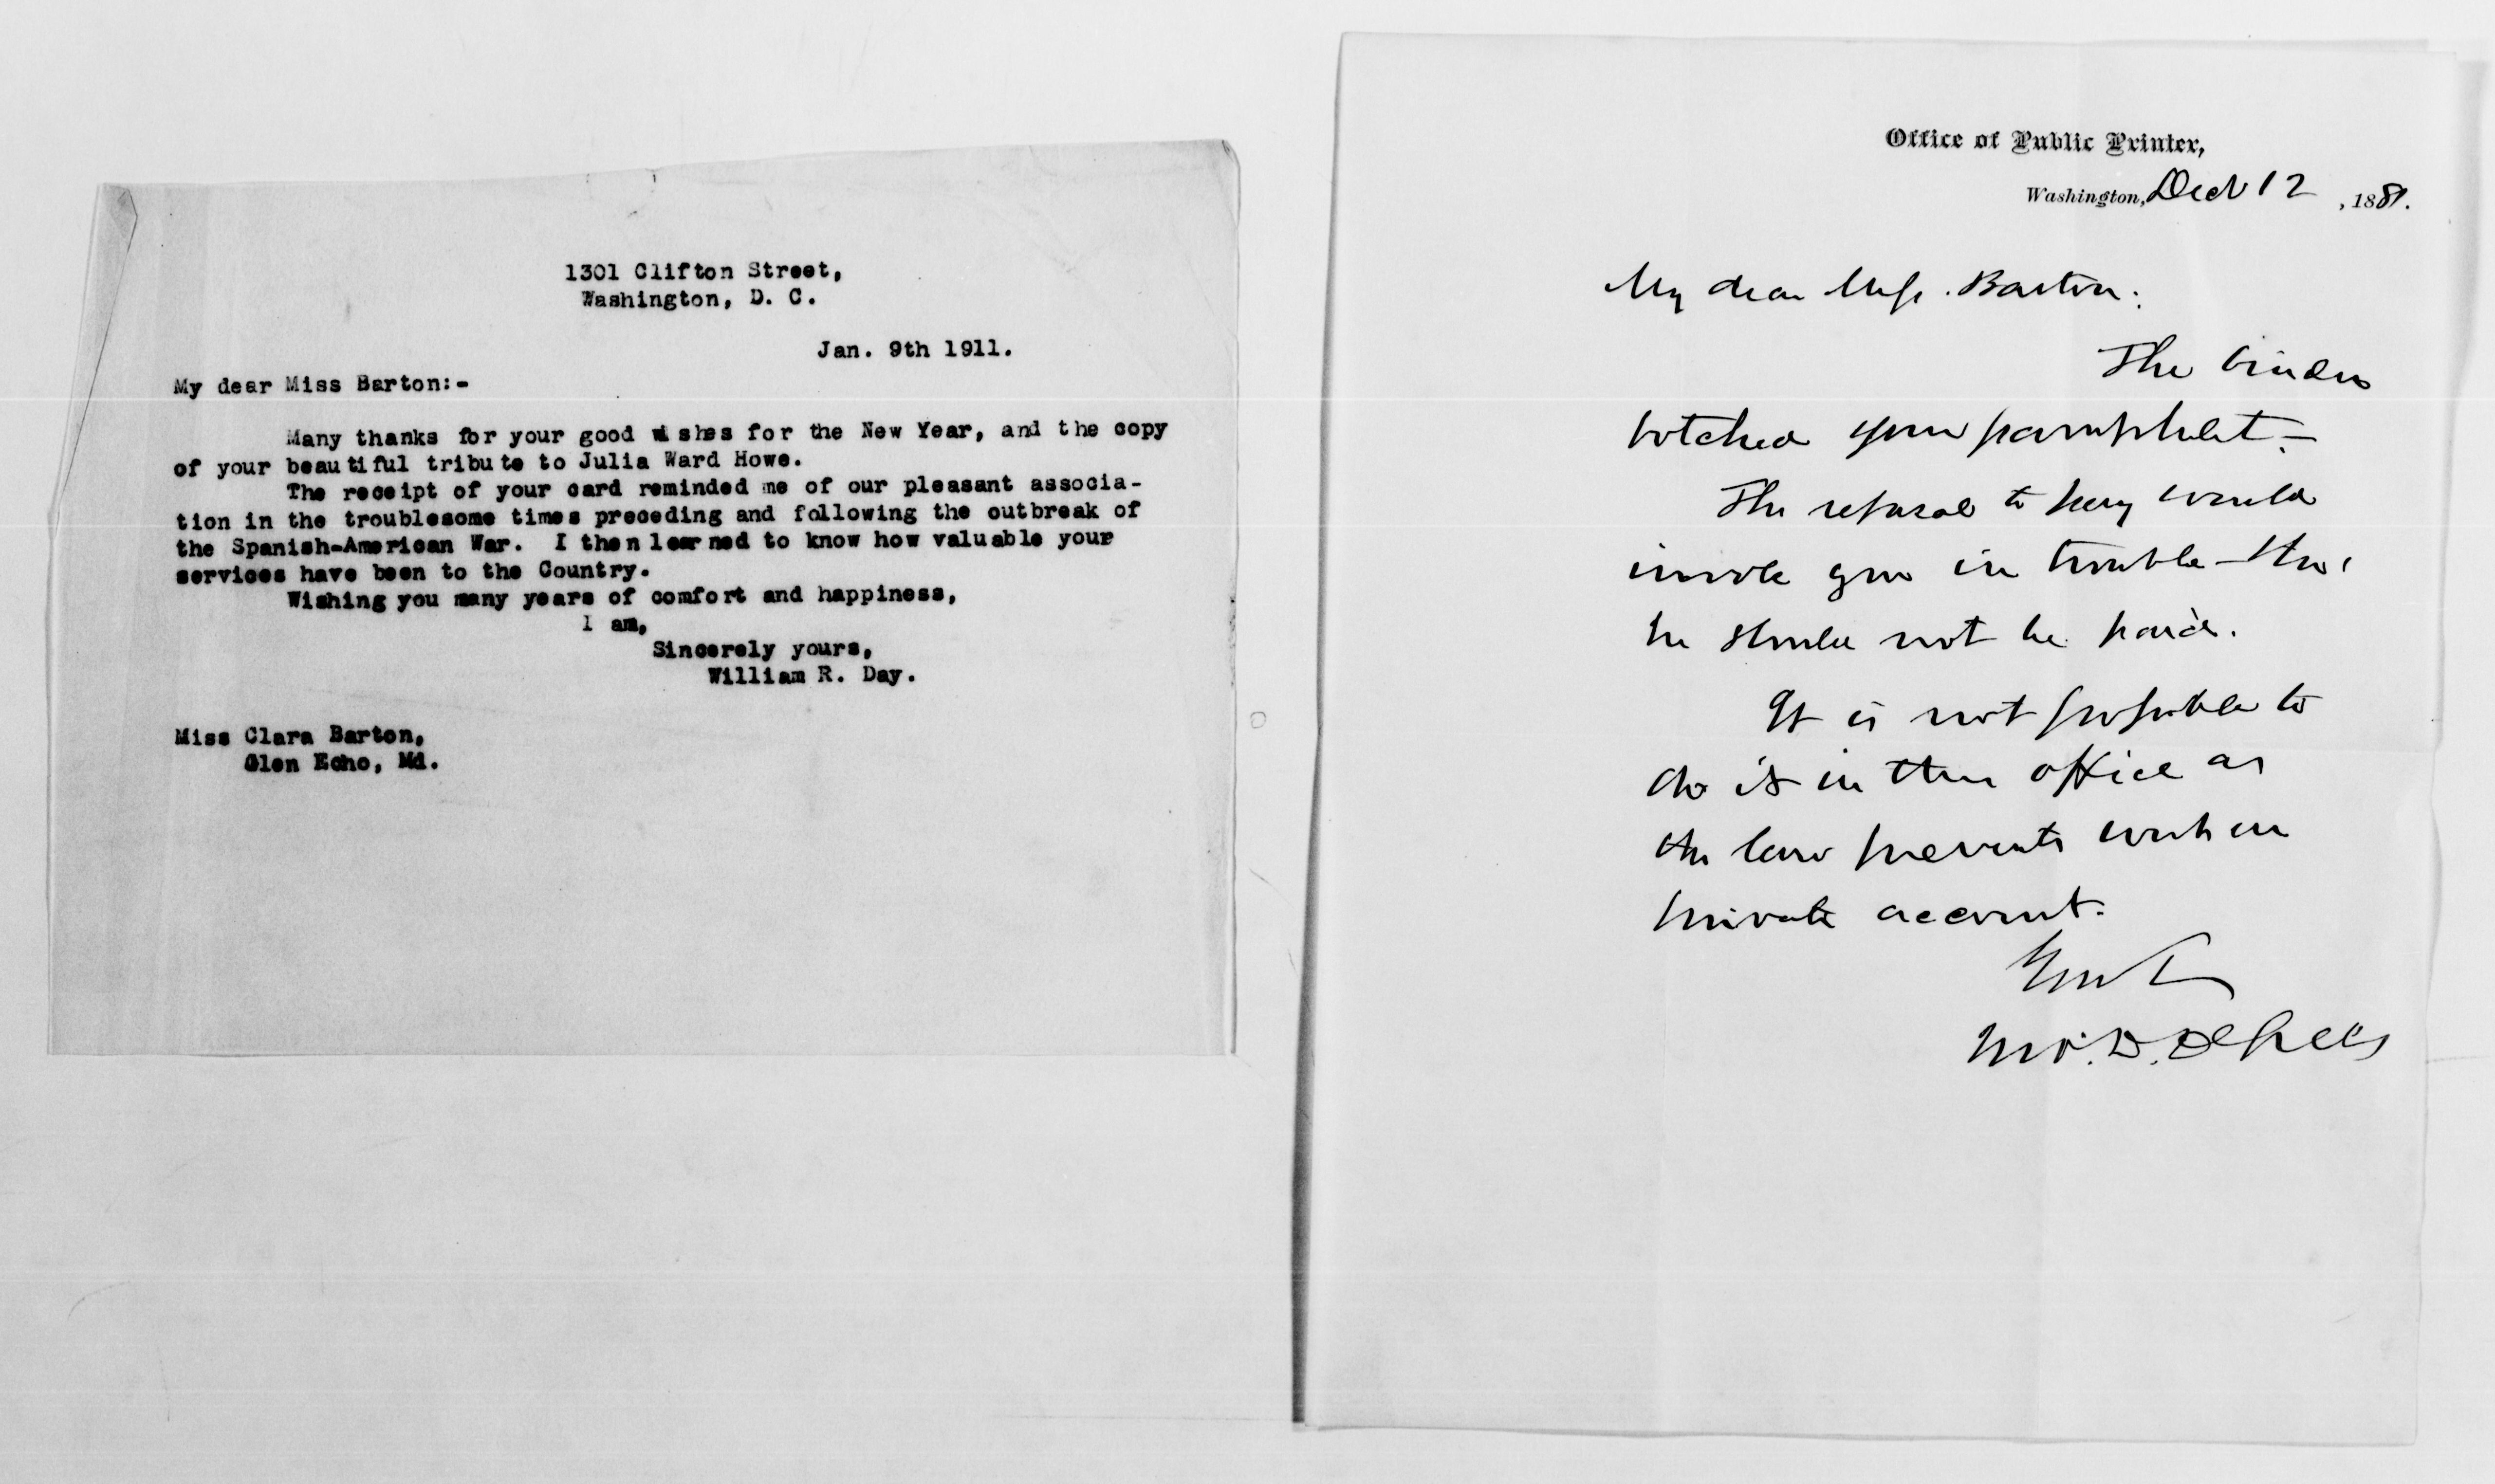 1301 Clifton Street,
Washington, D. C.
Jan. 9th 1911.
My dear Miss Barton:-
Many thanks for your good wishes for the New Year, and the copy
of your beautiful tribute to Julia Ward Howe.
The receipt of your card reminded me of our pleasant associa-
tion in the troublesome times preceding and following the outbreak of
the Spanish-American War. I then learned to know how valuable your
services have been to the Country.
Wishing you many years of comfort and happiness,
I am,
Sincerely yours,
William R. Day.
Miss Clara Barton,
Glen Echo, Md.
Office of Public Printer,
Washington, Dec 12, 1881.
My dear Miss Barton:
The binder
botched your pamphlet-
The refusal to pay would
involve you in trouble-tho'
he should not be paid.
It is not possible to
do it in this office as
the law prevents work on
private account.